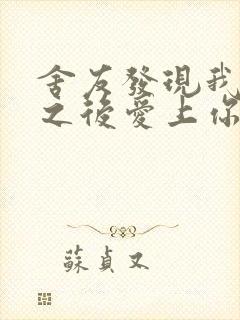 舍友發現我
之後愛上你
蘇貞又